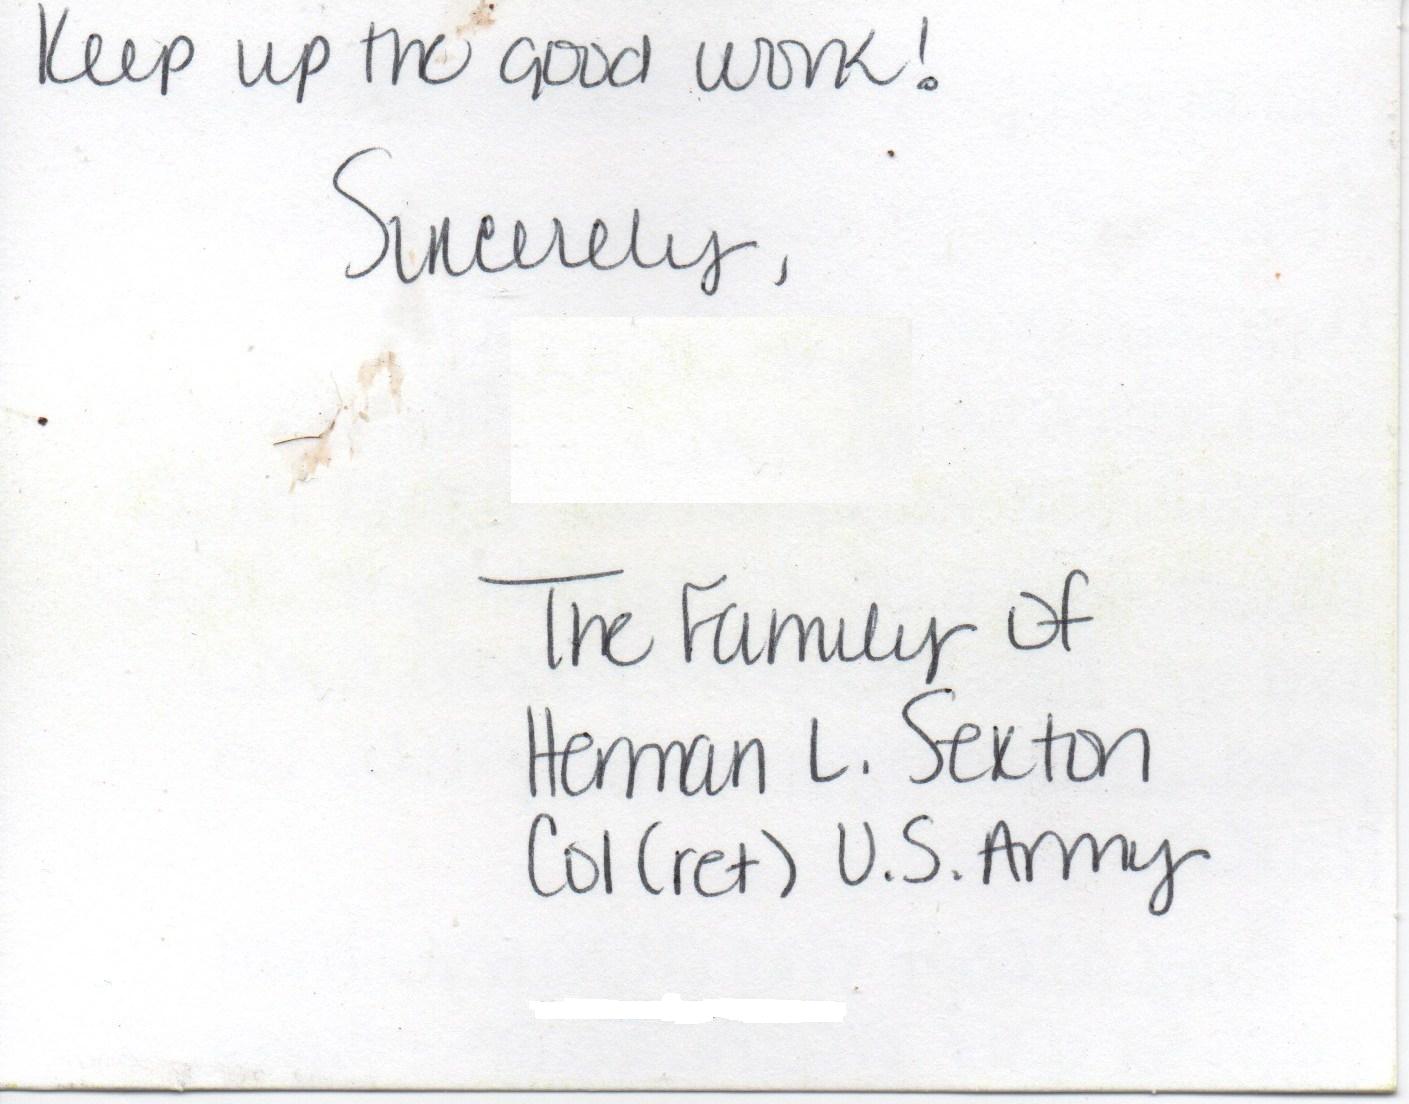 Keep up the good work!
Sincerely,
The Family of
Herman L. Sexton
Col (ret) U.S. Army